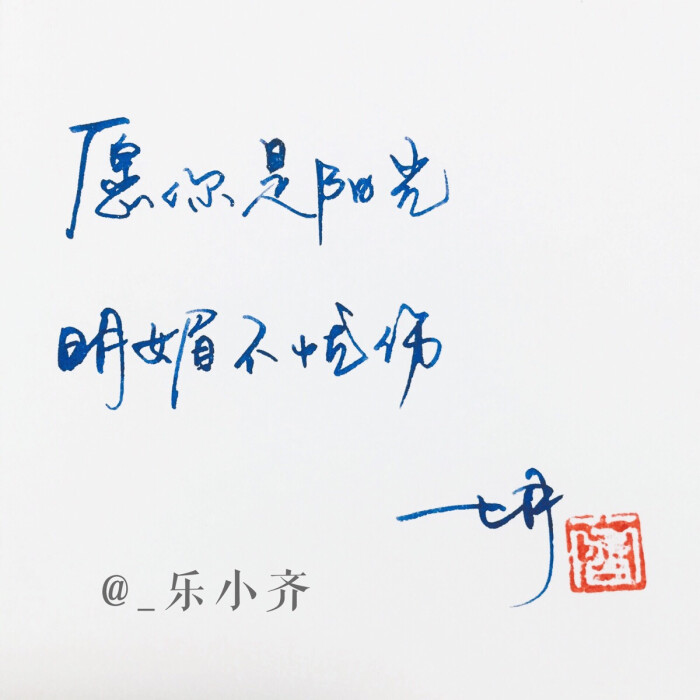 愿你是阳光
明媚不忧伤
@_乐小齐